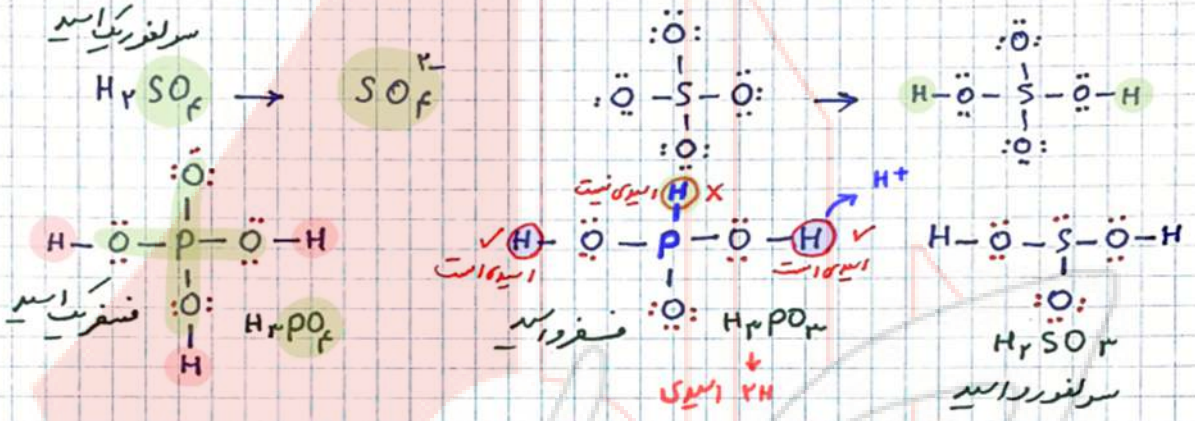 سولفوریک اسید
H۲SO۴ → SO۴ ۲−
O
O – S – O →
O
O
H – O – S – O – H
O
O
H – O – P – O – H
O
H
فسفریک اسید
H۳PO۴
اسیدی نیست H ×
H+
✓ H – O – P – O – H ✓
اسیدی است
اسیدی است
O
فسفرو اسید
H۳PO۳
↓
۲H اسیدی
H – O – S – O – H
O
H۲SO۳
سولفورو اسید